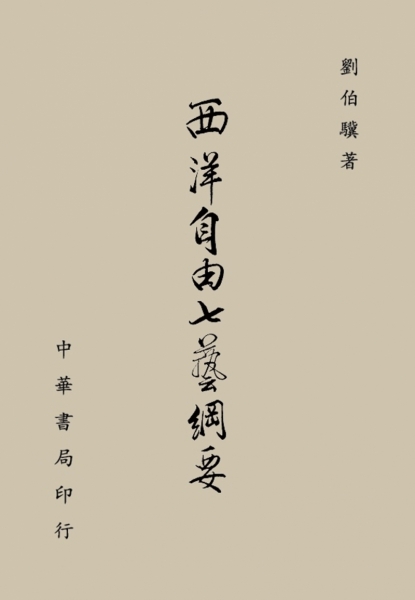 劉伯驥著
西洋自由七藝綱要
中華書局印行